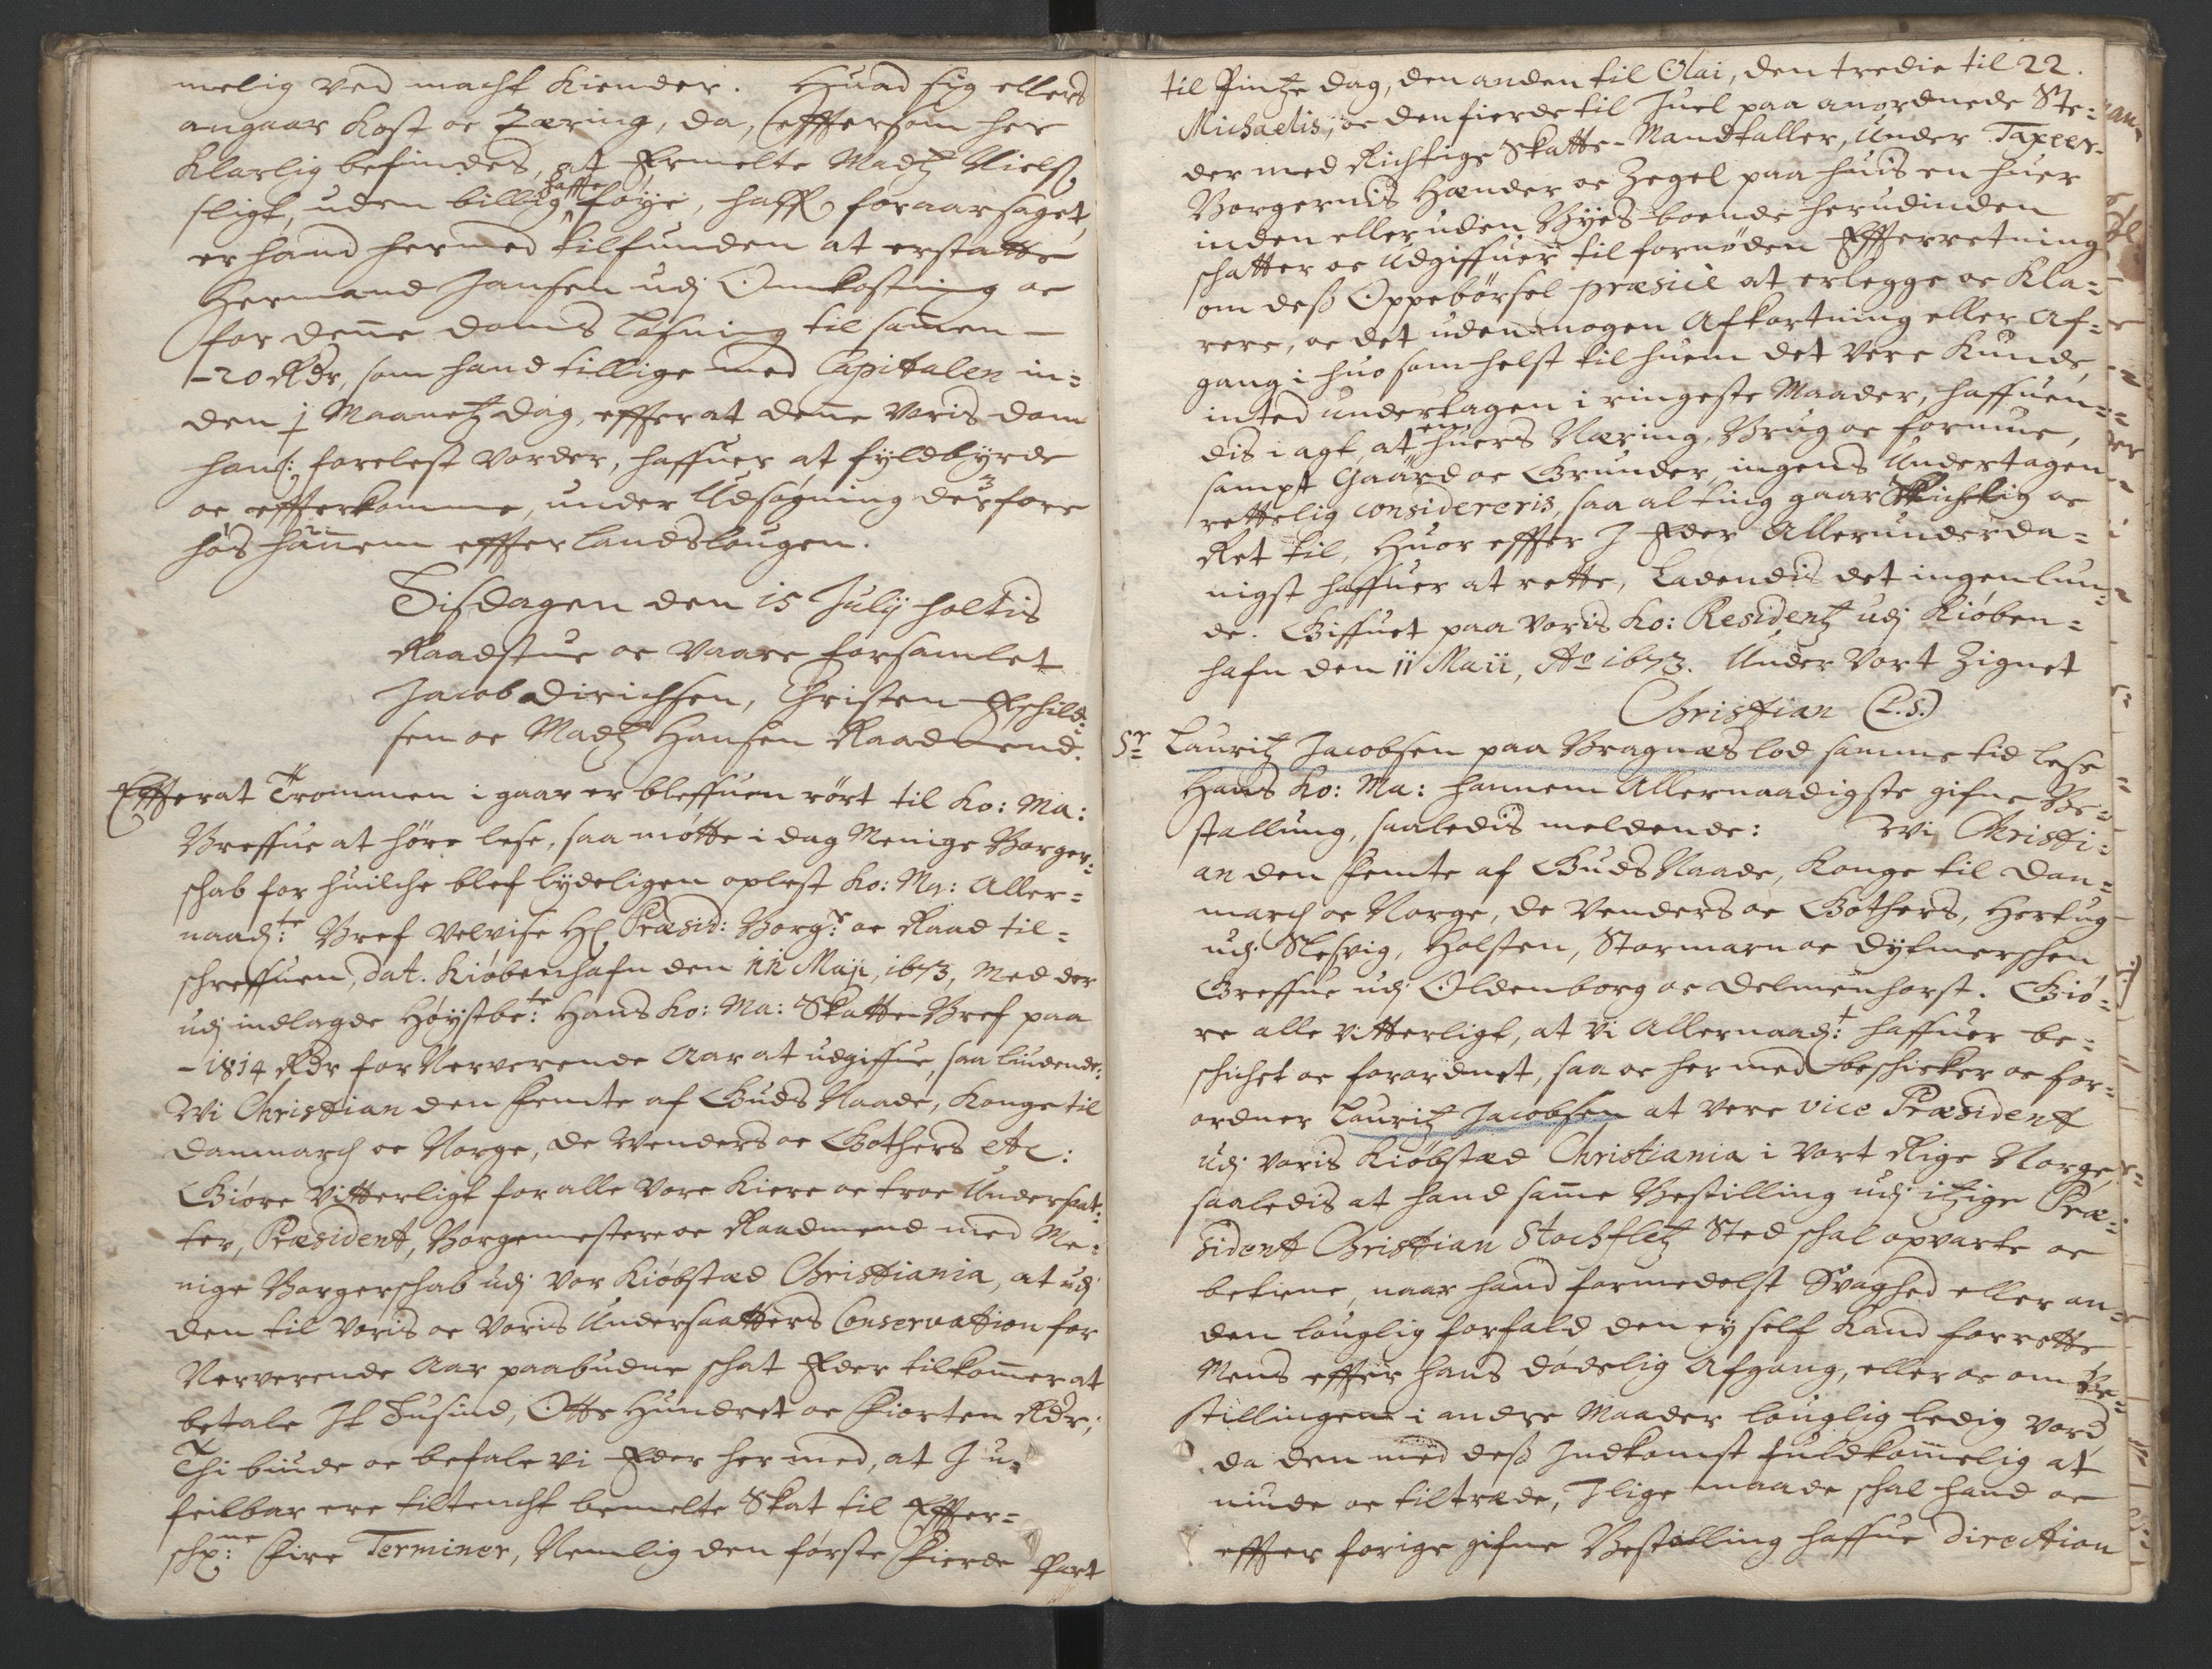 melig ved macht kiender. Huad sig ellers
angaar kost oc Tæring, da, effttersom her
klarlig befindes, at Ermelte Madtz Nielsz
sligt, uden billig haffte føye, haffr foraarsaget,
er hand hermed tilfunden at erstatte
Hermand Jansen udj Omkostning oc
for denne doms løsning til samen –
– 20 Rdr, som hand tillige med Capitalen in=
den j Maanetz dag, effter at denne voris dom
han: forelest vorder, haffuer at fyldbyrde
oc effterkomme, under Udsøgning derfore
hos hannem effter landslougen.
Tisdagen den 15 Julij holtis
Raadstue oc vaare forsamlet
Jacob Dirichsen, Christen Eschild=
sen oc Madtz Hansen Raadmend.
Effterat Trommen i gaar er bleffuen rørt til Ko: Ma:
Breffue at høre lese, saa møtte i dag Menige Borger=
schab for huilche blef lydeligen oplest Ko: Ma: Aller=
naad:te Bref velvise Hr Præsid: Borg:r oc Raad til=
schreffuen, dat. Kiøbenhafn den 11 Maji, 1673, Med der
udj indlagde Høystbe:te Hans Ko: Ma: Skatte-Bref paa
– 1814 Rdr for Nerverende Aar at udgiffue, saa liudende:
Wi Christian den femte af Guds Naade, Konge til
Danmarch oc Norge, de Wenders oc Gothers etc:
Giøre vitterligt for alle vore kiere oc troe Undersaat=
ter, Præsident, Borgemestere oc Raadmend med Me=
nige Borgerschab udj vor Kiøbstæd Christiania, at udj
den til voris oc voris Undersaatters Conservation for
Nerverende Aar paabudne schat Eder tilkommer at
betale It Tusind, Otte Hundret oc Fiorten Rdr;
Thi biude oc befale vi Eder her med, at I u=
feilbar ere tiltencht bemelte Skat til Effter=
schr:ne Fire Terminer, Nemlig den første Fierde Part
til Pintze dag, den anden til Olai, den tredie til 22.
Michaelis, oc den fierde til Juel paa anordnede Ste=
der med Richtige Skatte-Mandtaller, Under Taxeer-
Borgernis Hænder oc Zegel paa huis en huer
inden eller uden Byes boende herudinden
schatter oc Udgiffuer til fornøden Effterretning
om desz Oppebørsel præsice at erlegge oc Kla=
rere, oc det uden nogen Afkortning eller Af=
gang i huo som helst til huem det vere kunde,
inted undertagen i ringeste Maader, haffuen=
dis i agt, at en huers Næring, Brug oc formue,
sampt Gaard oc Grunder, ingens Undertagen
rettelig considereris, saa al ting gaar Skichelig oc
Ret til, Huor effter I Eder Allerunderda=
nigst haffuer at rette, Ladendis det ingenlun=
de. Giffuet paa voris Ko: Residentz udj Kiøben=
hafn den 11 Maii, Ao 1673. Under vort Zignet
Christian (L.S.)
Sr Lauritz Jacobsen paa Bragnæs lod samme tid lese
Hans Ko: Ma: hannem Allernaadigste gifne Be=
stallung, saaledis meldende: Wi Christi=
an den femte af Guds Naade, Konge til Dan=
march oc Norge, de Venders oc Gothers, Hertug
udj Slesvig, Holsten, Stormarn oc Dytmerschen
Greffue udj Oldenborg oc Delmenhorst. Giø=
re alle vitterligt, at vi Allernaad:t haffuer be=
schichet oc forordnet, saa oc her med beschicker oc for=
ordner Lauritz Jacobsen at vere vice Præsident
udj voris Kiøbstæd Christiania i vort Rige Norge,
saaledis at hand samme Bestilling udj itzige Præ=
sident Christian Stochfletz Sted schal opvarte oc
betiene, naar hand formedelst Svaghed eller an=
den louglig forfald den ey self kand forrette
Mens effter hans dødelig Afgang, eller oc om Be=
stillingen i andre Maader louglig ledig vord,
da den med desz Indkomst fuldkommelig at
niude oc tiltræde, I lige maade schal hand oc
effter forige gifne Bestilling haffue Direction